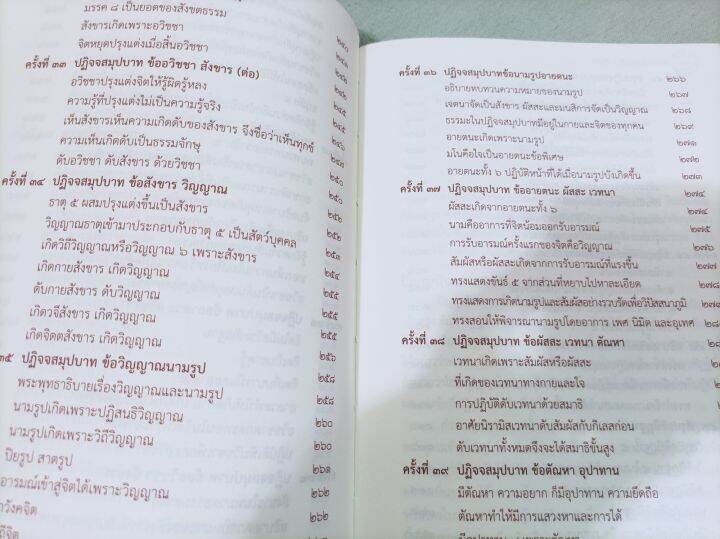 มรรค ๘ เป็นยอดของสังขตธรรม
สังขารเกิดเพราะอวิชชา ๒๔๐
จิตหยุดปรุงแต่งเมื่อสิ้นอวิชชา
ครั้งที่ ๓๓ ปฏิจจสมุปบาท ข้ออวิชชา สังขาร (ต่อ)
อวิชชาปรุงแต่งจิตให้รู้ผิดรู้หลง
ความรู้ที่ปรุงแต่งไม่เป็นความรู้จริง
เห็นสังขารเห็นความเกิดดับของสังขาร จึงชื่อว่าเห็นทุกข์
ความเห็นเกิดดับเป็นธรรมจักษุ
ดับอวิชชา ดับสังขาร ด้วยวิชชา
ครั้งที่ ๓๔ ปฏิจจสมุปบาท ข้อสังขาร วิญญาณ ๒๕๐
ธาตุ ๕ ผสมปรุงแต่งขึ้นเป็นสังขาร ๒๕๒
วิญญาณธาตุเข้ามาประกอบกับธาตุ ๕ เป็นสัตว์บุคคล ๒๕๒
เกิดวิถีวิญญาณหรือวิญญาณ ๖ เพราะสังขาร ๒๕๓
เกิดกายสังขาร เกิดวิญญาณ ๒๕๔
ดับกายสังขาร ดับวิญญาณ ๒๕๕
เกิดวจีสังขาร เกิดวิญญาณ ๒๕๕
เกิดจิตตสังขาร เกิดวิญญาณ ๒๕๕
๓๕ ปฏิจจสมุปบาท ข้อวิญญาณนามรูป ๒๕๖
พระพุทธาธิบายเรื่องวิญญาณและนามรูป ๒๕๘
นามรูปเกิดเพราะปฏิสนธิวิญญาณ ๒๖๐
นามรูปเกิดเพราะวิถีวิญญาณ ๒๖๐
ปิยรูป สาตรูป ๒๖๑
อารมณ์เข้าสู่จิตได้เพราะวิญญาณ ๒๖๒
วังคจิต ๒๖๒
ถีจิต
ครั้งที่ ๓๖ ปฏิจจสมุปบาทข้อนามรูปอายตนะ ๒๖๖
อธิบายทบทวนความหมายของนามรูป ๒๖๗
เจตนาจัดเป็นสังขาร ผัสสะและมนสิการจัดเป็นวิญญาณ ๒๖๘
ธรรมะในปฏิจจสมุปบาทมีอยู่ในกายและจิตของทุกคน ๒๖๙
อายตนะเกิดเพราะนามรูป ๒๗๑
มโนคือใจเป็นอายตนะข้อพิเศษ ๒๗๒
อายตนะทั้ง ๖ ปฏิบัติหน้าที่ได้เมื่อนามรูปบังเกิดขึ้น ๒๗๓
ครั้งที่ ๓๗ ปฏิจจสมุปบาท ข้ออายตนะ ผัสสะ เวทนา ๒๗๔
ผัสสะเกิดจากอายตนะทั้ง ๖ ๒๗๔
นามคืออาการที่จิตน้อมออกรับอารมณ์ ๒๗๕
การรับอารมณ์ครั้งแรกของจิตคือวิญญาณ ๒๗๖
สัมผัสหรือผัสสะเกิดจากการรับอารมณ์ที่แรงขึ้น ๒๗
ทรงแสดงขันธ์ ๕ จากส่วนที่หยาบไปหาละเอียด ๒๗
ทรงแสดงการเกิดนามรูปและสัมผัสอย่างรวบรัดเพื่อวิปัสสนาภูมิ ๒๗
ทรงสอนให้พิจารณานามรูปโดยอาการ เพศ นิมิต และอุเทศ ๒๗
ครั้งที่ ๓๘ ปฏิจจสมุปบาท ข้อผัสสะ เวทนา ตัณหา ๒๘
เวทนาเกิดเพราะสัมผัสหรือผัสสะ ๒๘
ที่เกิดของเวทนาทางกายและใจ
การปฏิบัติดับเวทนาด้วยสมาธิ
อาศัยนิรามิสเวทนาดับสัมผัสกับกิเลสก่อน
ดับเวทนาทั้งหมดจึงจะได้สมาธิขั้นสูง
ครั้งที่ ๓๙ ปฏิจจสมุปบาท ข้อตัณหา อุปาทาน
มีตัณหา ความอยาก ก็มีอุปาทาน ความยึดถือ
ตัณหาทำให้มีการแสวงหาและการได้